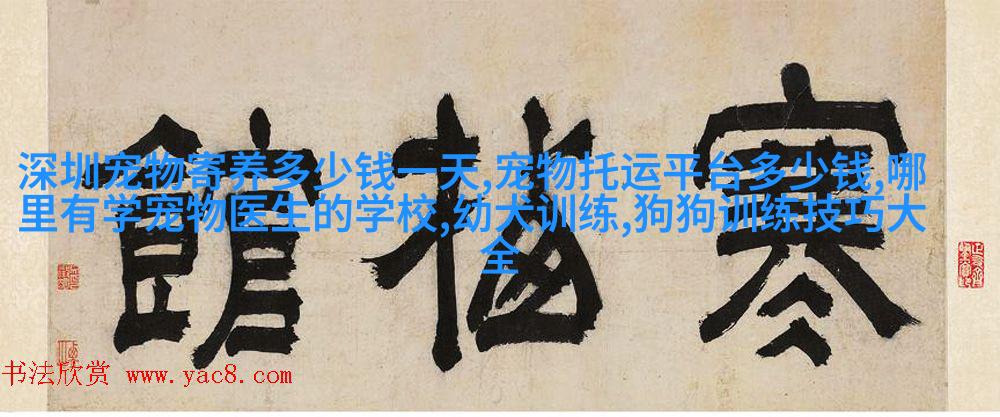 寒梅館
深圳宠物寄养多少钱一天,宠物托运平台多少钱,哪
里有学宠物医生的学校,幼犬训练,狗狗训练技巧大
全
书法欣赏 www.yac8.com